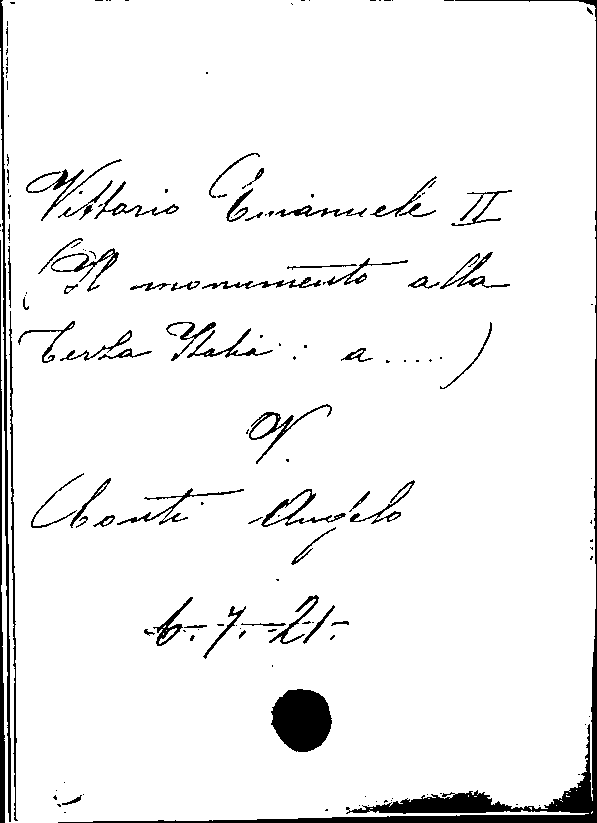 Vittorio Emanuele II
(Il monumento alla
Terza Italia : a.....)
V.
Conti Angelo
6.7.21.